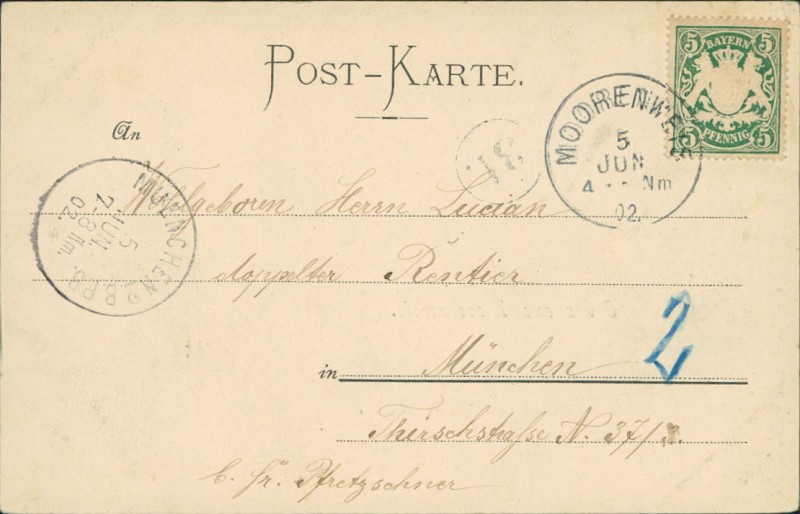 POST-KARTE.
5 BAYERN 5
5 PFENNIG 5
MOORENWEIS
5
JUN
4 Nm
02.
31
An
MUENCHEN 2. B.P.8
5
JUN.
7-8 Nm.
02.
Wohlgeboren Herrn Lucian
doppelter Rentier
in München
Thierschstraße N. 37/3.
b. Fr. Pfretzschner
2